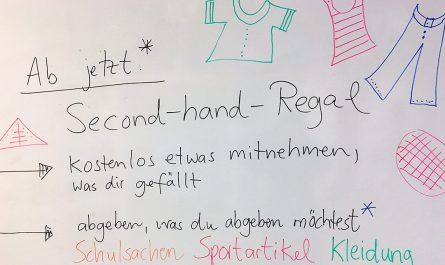 Ab jetzt:*
Second-hand-Regal
kostenlos etwas mitnehmen,
was dir gefällt
abgeben, was du abgeben möchtest*
Schulsachen Sportartikel Kleidung